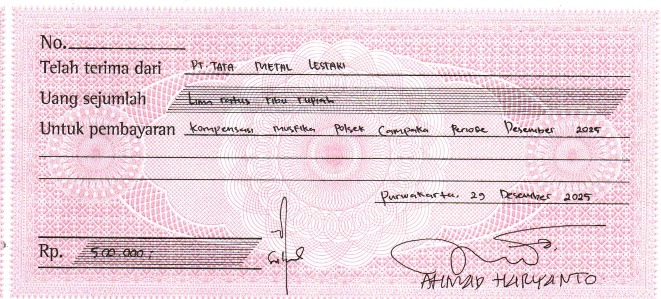 No.
Telah terima dari PT. TATA METAL LESTARI
Uang sejumlah Lima ratus ribu rupiah
Untuk pembayaran Kompensasi muspika Polsek Campaka Periode Desember 2025
Purwakarta, 29 Desember 2025
Rp. 500.000,-
AHMAD HARYANTO